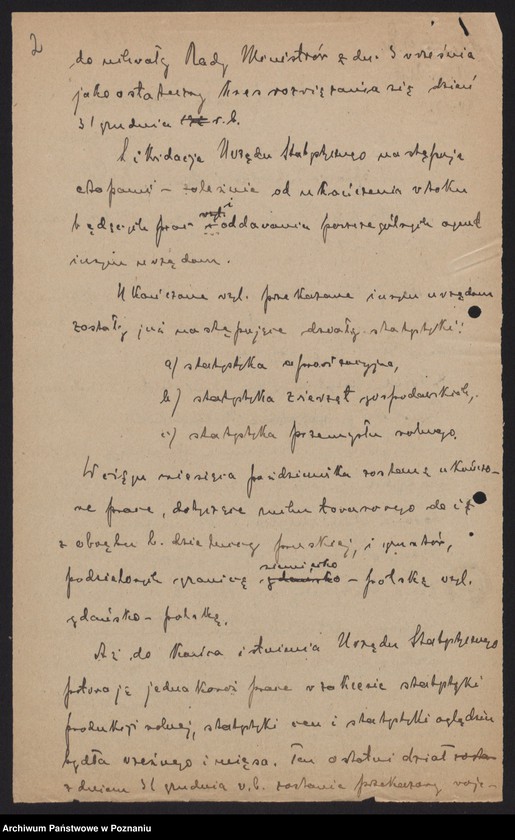 2
do uchwały Rady Ministrów z dn. 3 września
jako ostateczny kres rozwiązania się dzień
31 grudnia r.b.
Likwidacja Urzędu Statystycznego następuje
etapami – zależnie od ukończenia w toku
będących prac wzgl. i oddawania poszczególnych agend
innym urzędom.
Ukończone wzgl. przekazane innym urzędom
zostały już następujące działy statystyki:
a) statystyka aprowizacyjna,
b) statystyka zwierząt gospodarskich,
c) statystyka przemysłu rolnego.
W ciągu miesiąca października zostaną ukończo-
ne prace, dotyczące ruchu towarowego do i z
z obrębu b. dzielnicy pruskiej, i powiatów,
podzielonych granicą niemiecko
gdańsko – polską wzgl.
gdańsko – polską.
Aż do końca istnienia Urzędu Statystycznego
potrwają jednakowoż prace w zakresie statystyki
produkcji rolnej, statystyki cen i statystyki oględzin
bydła rzeźnego i mięsa. Ten ostatni dział
z dniem 31 grudnia r.b. zostanie przekazany woje-
Archiwum Państwowe w Poznaniu
www.szukajwarchiwach.pl